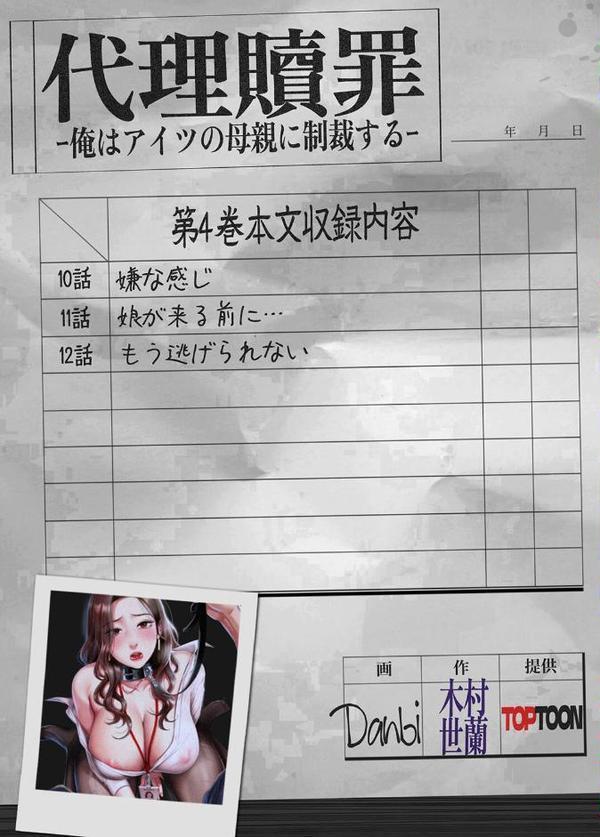 代理贖罪
-俺はアイツの母親に制裁する-
年 月 日
第4巻本文収録内容
10話 嫌な感じ
11話 娘が来る前に…
12話 もう逃げられない
画 作 提供
Danbi 木村世蘭 TOPTOON